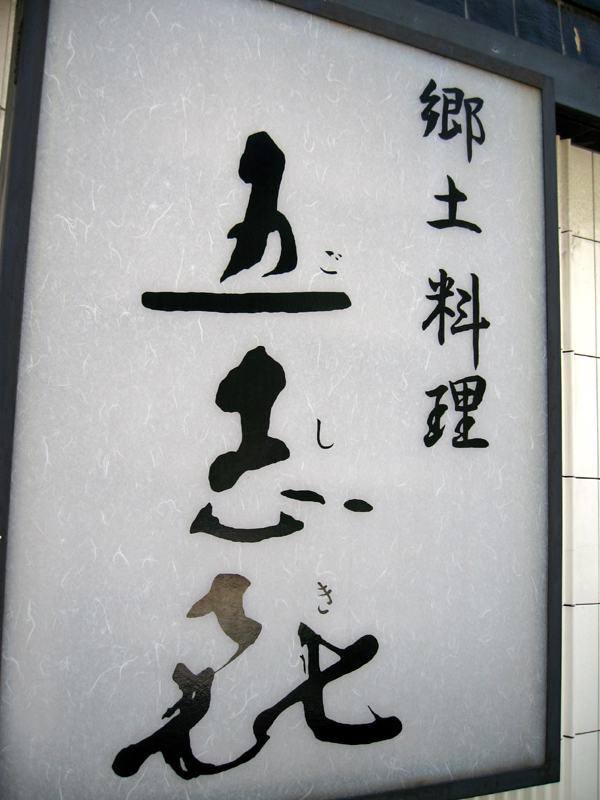 郷土料理
五志㐂
ごしき